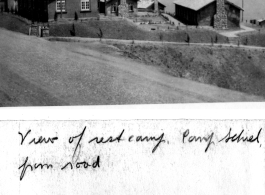 View of rest camp. Camp School,
from road